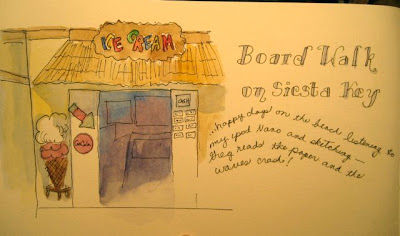 ICE CREAM
CASH
Board Walk
on Siesta Key
..happy days on the beach listening to
my ipod Nano and sketching —
they reads the paper and the
waves crash!